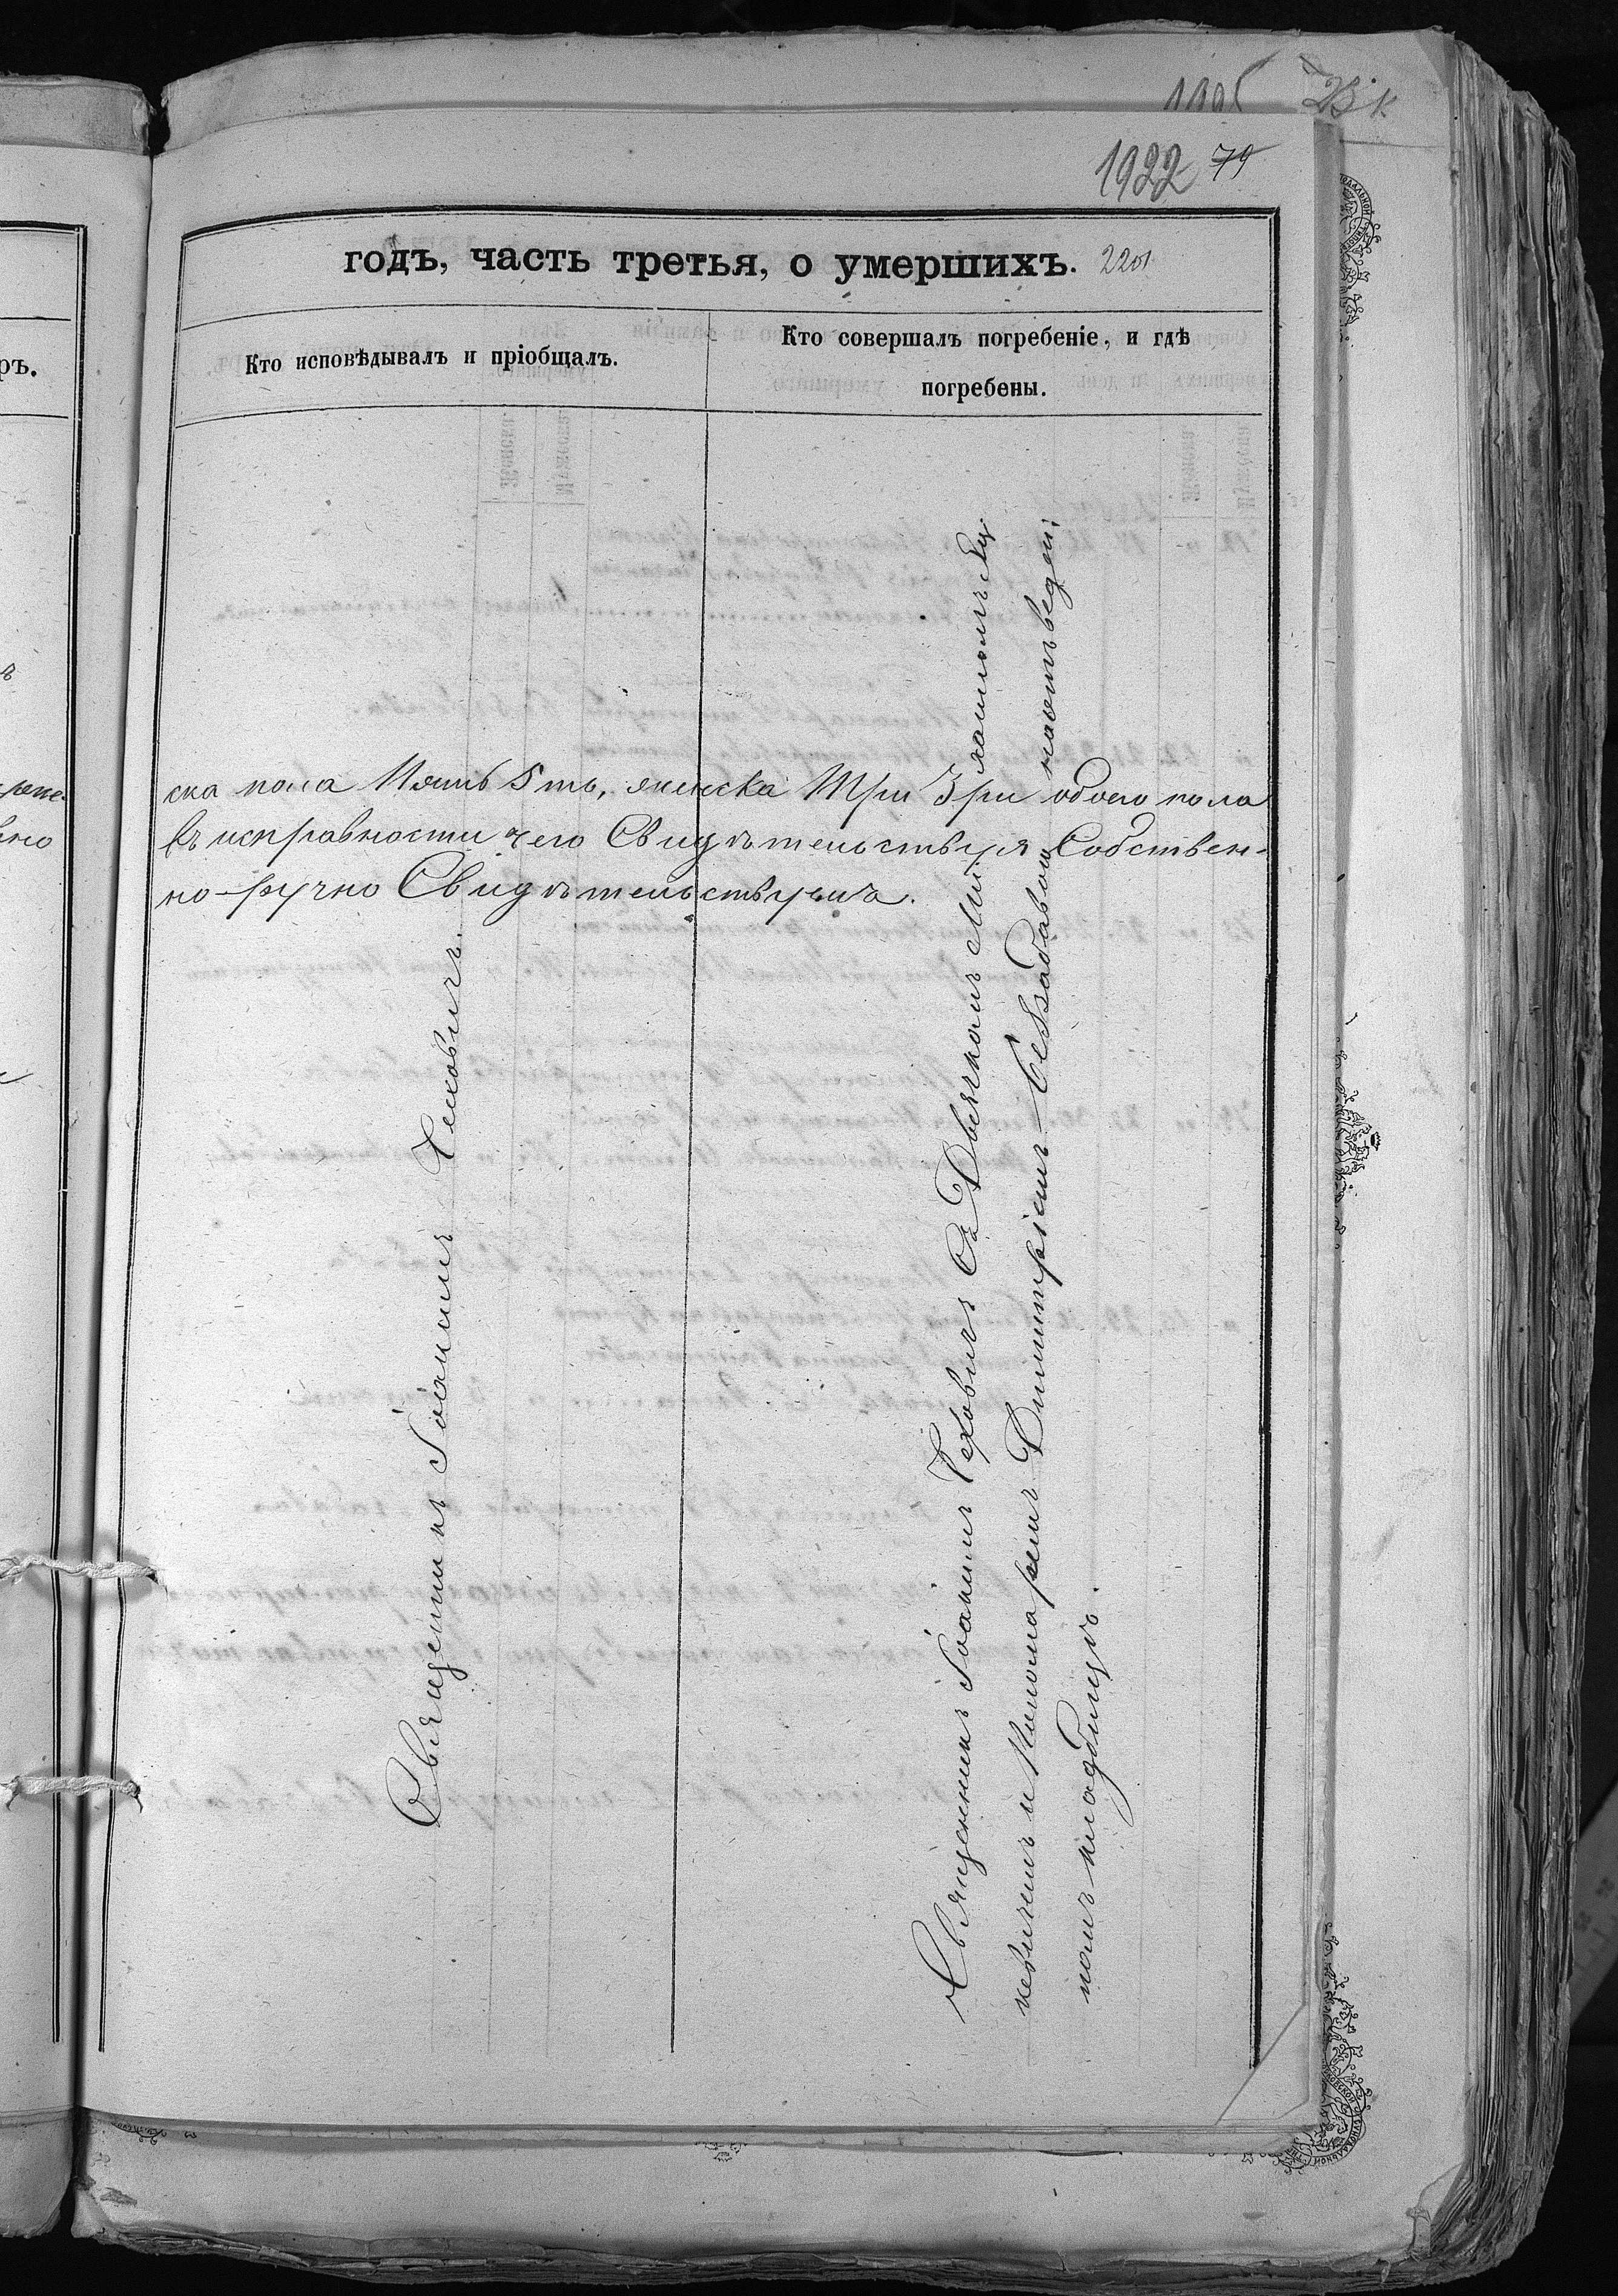 1922 79
годъ, часть третья, о умершихъ. 2201
Кто исповѣдывалъ и пріобщалъ.
Кто совершалъ погребеніе, и гдѣ
погребены.
ска пола Пять 5ть, женска Три 3ри обоего пола
въ исправности чего Свидѣтельствуя Собствен-
но-ручно Свидѣтельствуемъ.
Священникъ Іоаннъ Чеховичъ.
Священникъ Іоаннъ Чеховичъ Съ Дьячкомъ
кевичемъ и Пономаремъ Димитріемъ
номъ кладбищѣ.